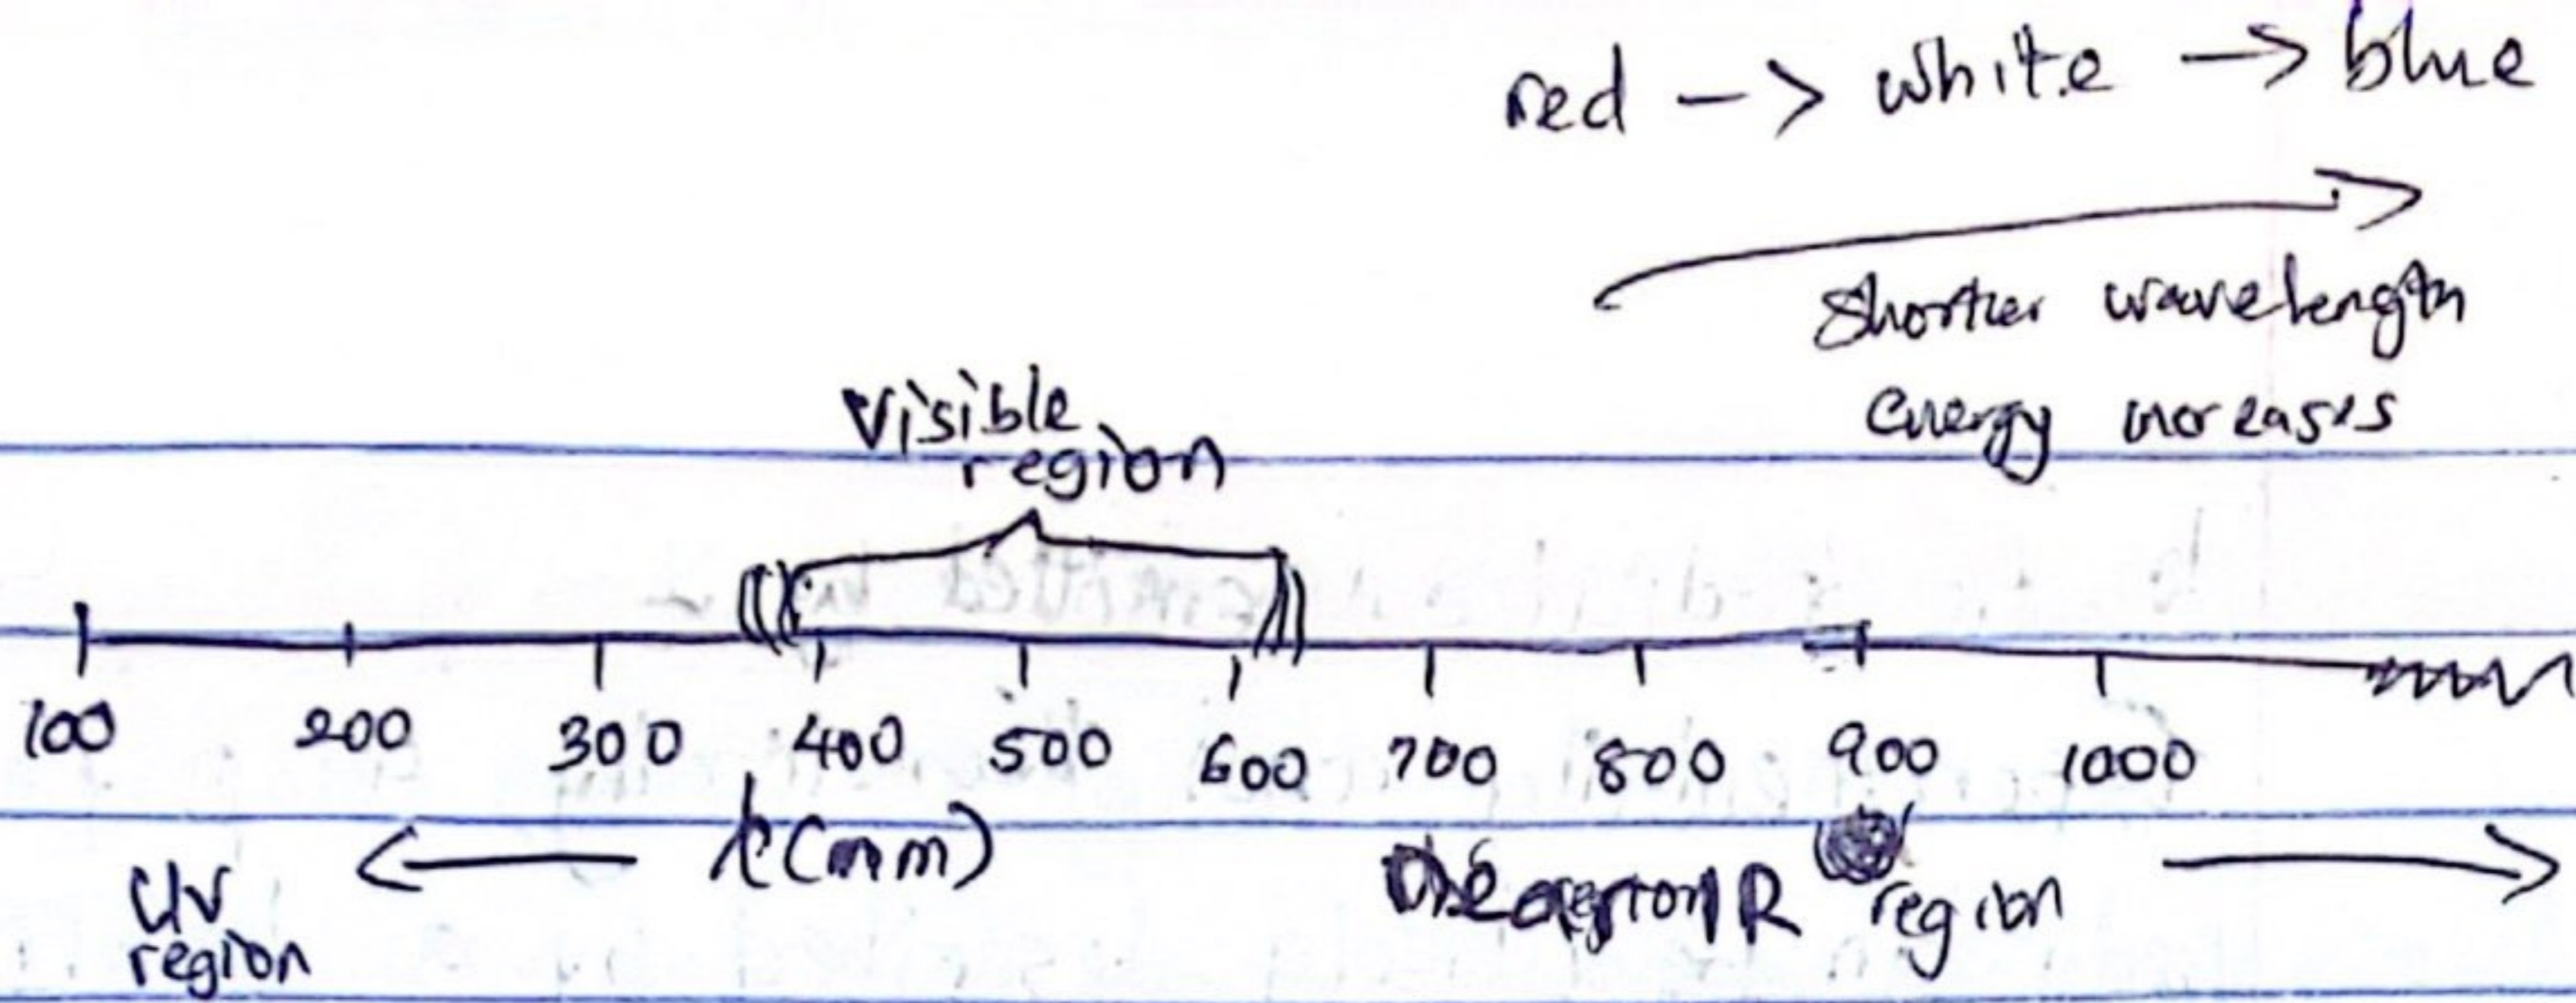 red -> white -> blue
shorter wavelength
energy increases
Visible
region
100 200 300 400 500 600 700 800 900 1000
(nm)
UV
region
IR region